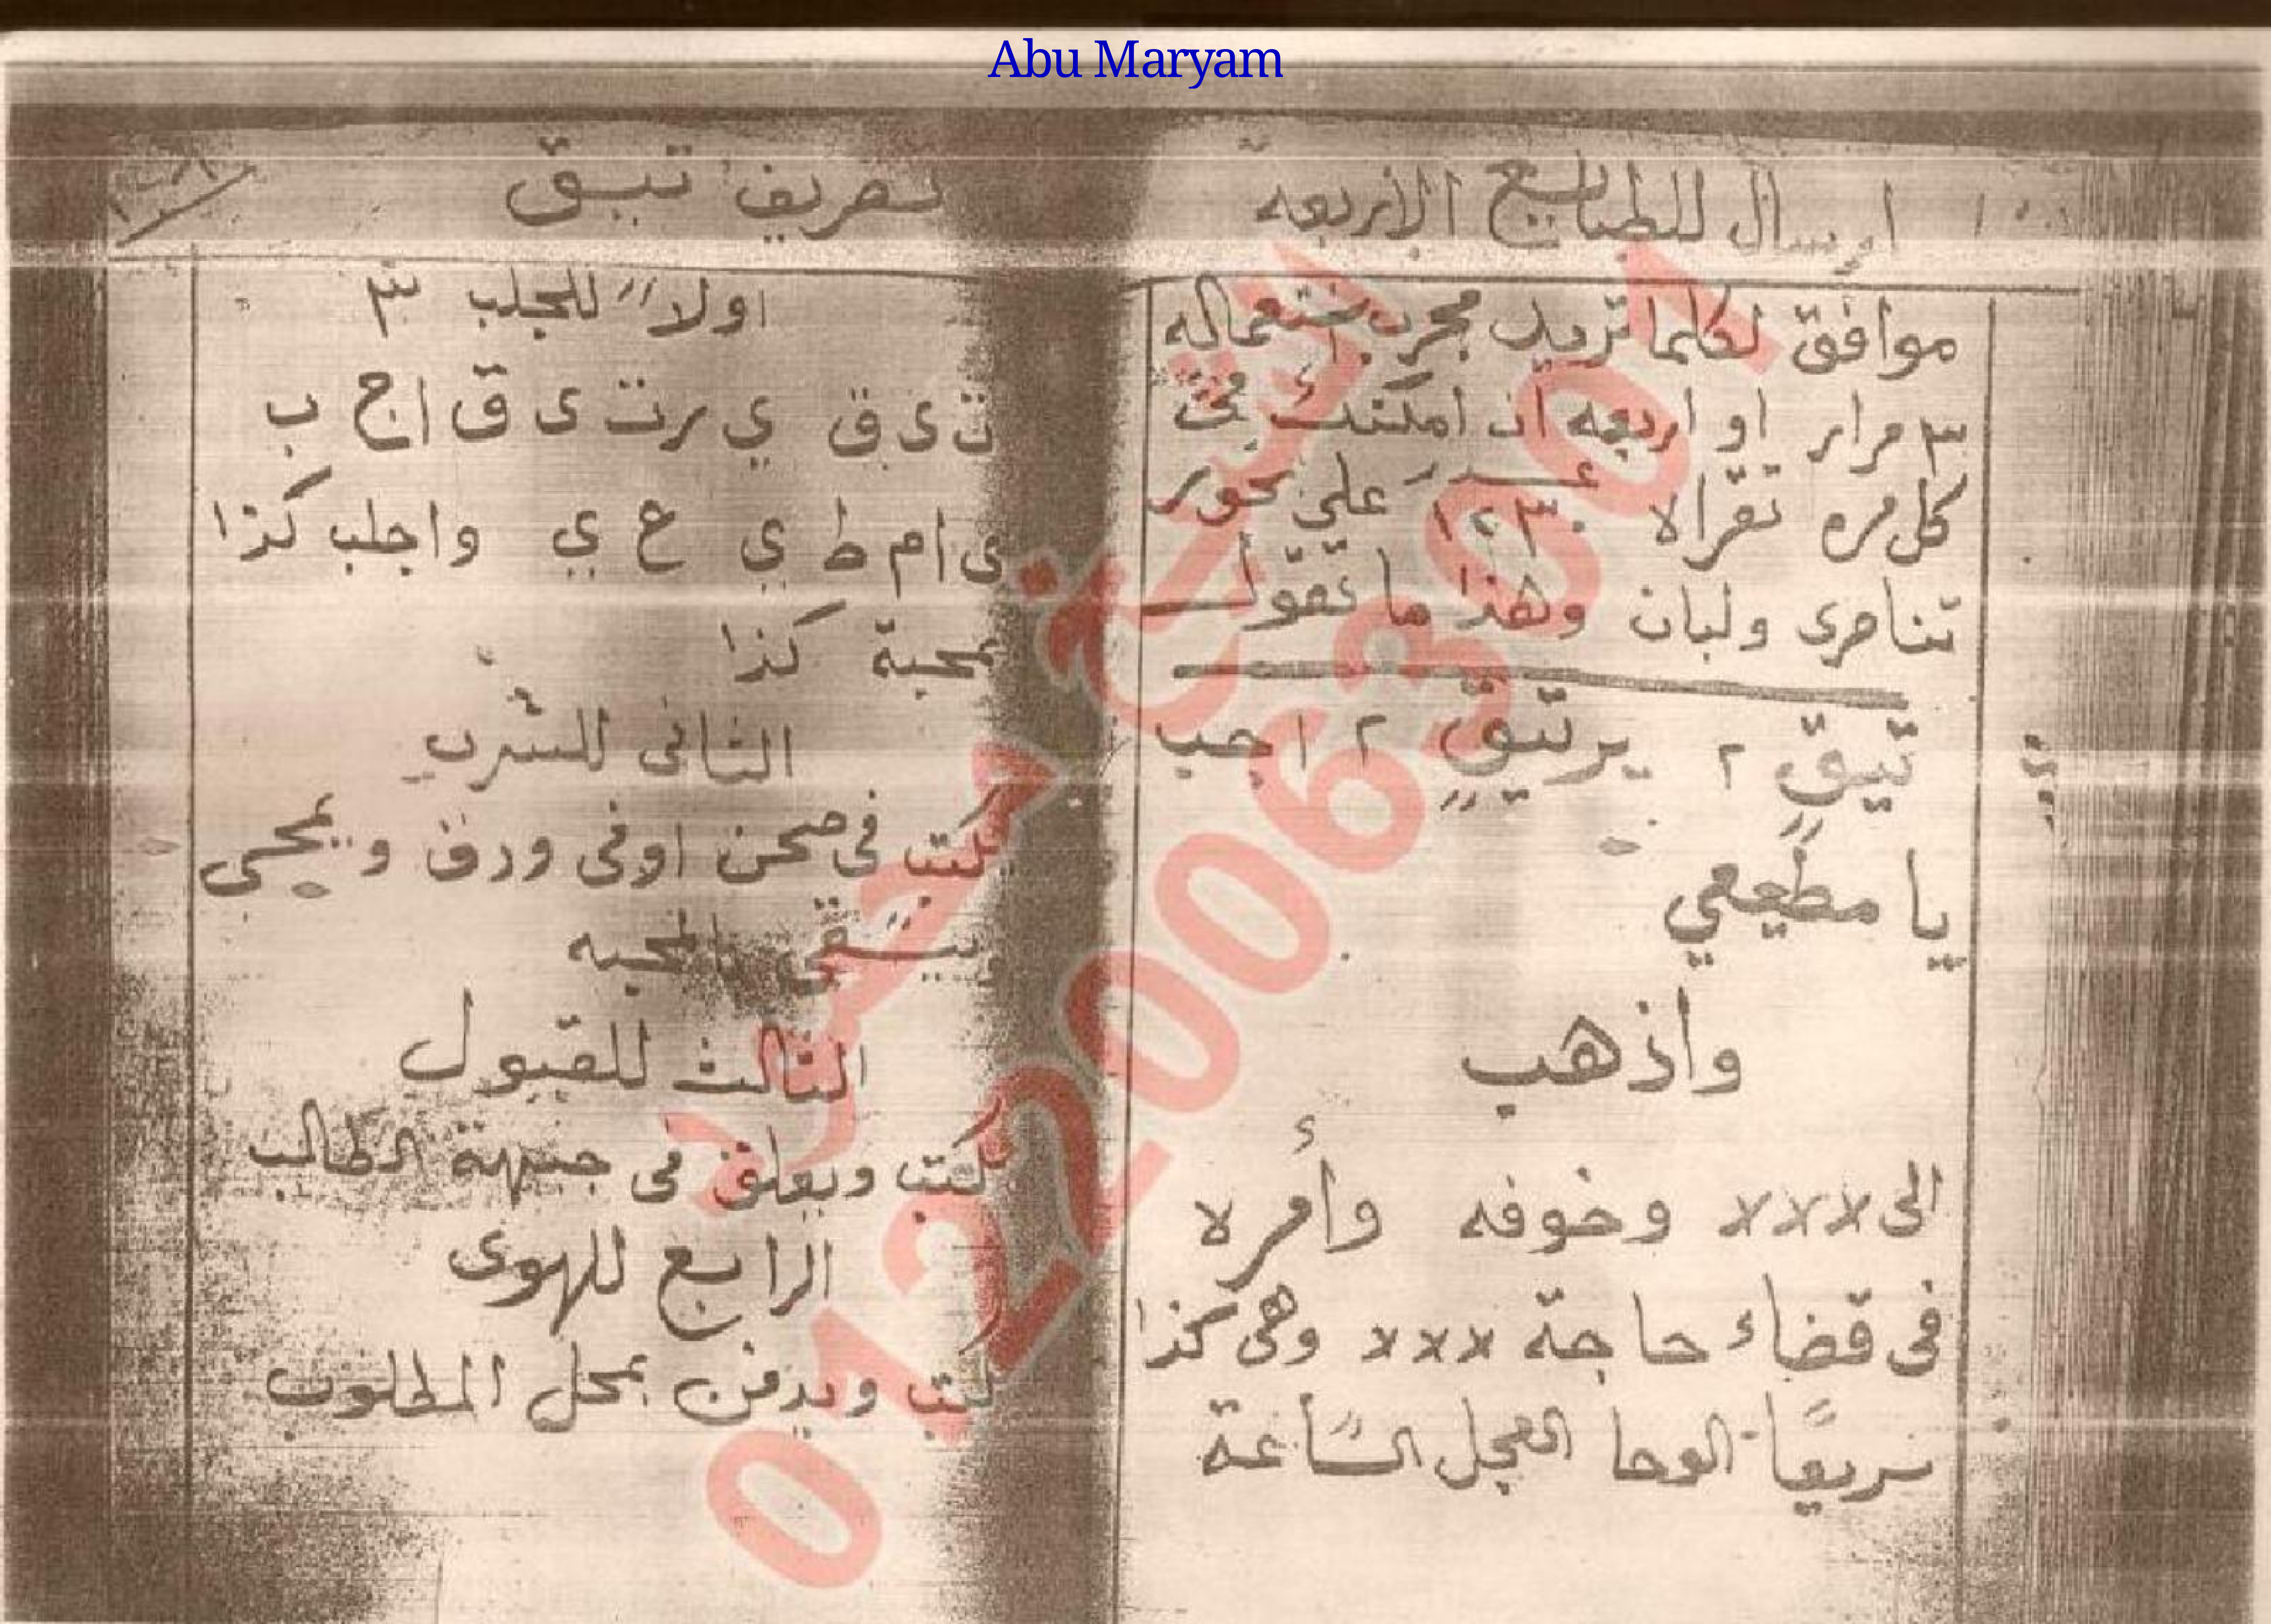 Abu Maryam
ارسال للطبايع الاربعه
موافق لكلما تريد مجرب استعماله
٣ مرار او اربعه ان امكنك فى
كل مره تقراه ١٢٣٠ على بخور
تناصرى ولبان وهذا ما تقول
تيق ٢ يرتيق ٢ اجب
يا مطيعي
واذهب
الى ××× وخوفه وأمره
فى قضاء حاجة ××× وهى كذا
سريعًا الوحا العجل الساعة
تصريف تيق
اولا للجلب ٣
ت ى ق ي ر ت ى ق ا ج ب
ى ا م ط ي ع ي واجلب كذا
بمحبة كذا
الثانى للشرب
تكتب فى صحن او فى ورق ويمحى
ويسقى المحبه
الثالث للقبول
تكتب ويعلق فى جبهة الطالب
الرابع للهوى
تكتب ويدفن بمحل المطلوب
01220063001